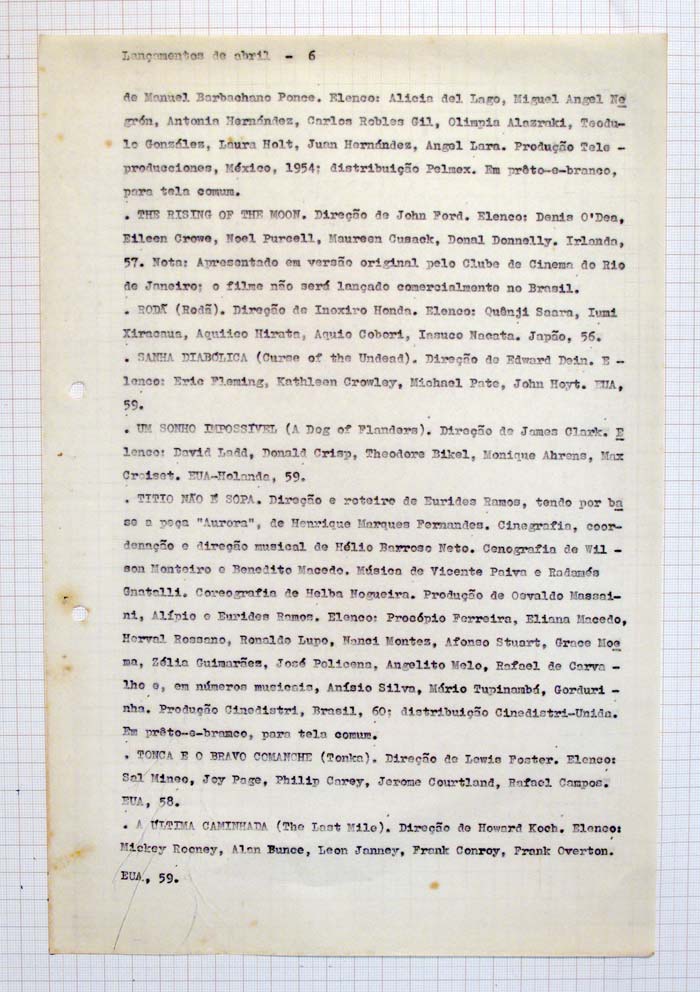 Lançamentos de abril - 6
de Manuel Barbachano Ponce. Elenco: Alicia del Lago, Miguel Angel Ne
grón, Antonia Hernández, Carlos Robles Gil, Olimpia Alazraki, Teodu-
lo González, Laura Holt, Juan Hernández, Angel Lara. Produção Tele -
producciones, México, 1954; distribuição Pelmex. Em prêto-e-branco,
para tela comum.
. THE RISING OF THE MOON. Direção de John Ford. Elenco: Denis O'Dea,
Eileen Crowe, Noel Purcell, Maureen Cusack, Donal Donnelly. Irlanda,
57. Nota: Apresentado em versão original pelo Clube de Cinema do Rio
de Janeiro; o filme não será lançado comercialmente no Brasil.
. RODÃ (Rodã). Direção de Inoxiro Honda. Elenco: Quênji Saara, Iumi
Xiracaua, Aquiico Hirata, Aquio Cobori, Iasuco Nacata. Japão, 56.
. SANHA DIABÓLICA (Curse of the Undead). Direção de Edward Dein. E -
lenco: Eric Fleming, Kathleen Crowley, Michael Pate, John Hoyt. EUA,
59.
. UM SONHO IMPOSSÍVEL (A Dog of Flanders). Direção de James Clark. E
lenco: David Ladd, Donald Crisp, Theodore Bikel, Monique Ahrens, Max
Croiset. EUA-Holanda, 59.
. TITIO NÃO É SOPA. Direção e roteiro de Eurides Ramos, tendo por ba
se a peça "Aurora", de Henrique Marques Fernandes. Cinegrafia, coor-
denação e direção musical de Hélio Barroso Neto. Cenografia de Wil -
son Monteiro e Benedito Macedo. Música de Vicente Paiva e Radamés
Gnatalli. Coreografia de Helba Nogueira. Produção de Osvaldo Massai-
ni, Alípio e Eurides Ramos. Elenco: Procópio Ferreira, Eliana Macedo,
Herval Rossano, Ronaldo Lupo, Nanci Montez, Afonso Stuart, Grace Moe
ma, Zélia Guimarães, José Policena, Angelito Melo, Rafael de Carva -
lho e, em números musicais, Anísio Silva, Mário Tupinambá, Gorduri -
nha. Produção Cinedistri, Brasil, 60; distribuição Cinedistri-Unida.
Em prêto-e-branco, para tela comum.
. TONCA E O BRAVO COMANCHE (Tonka). Direção de Lewis Foster. Elenco:
Sal Mineo, Joy Page, Philip Carey, Jerome Courtland, Rafael Campos.
EUA, 58.
. A ÚLTIMA CAMINHADA (The Last Mile). Direção de Howard Koch. Elenco:
Mickey Rooney, Alan Bunce, Leon Janney, Frank Conroy, Frank Overton.
EUA, 59.